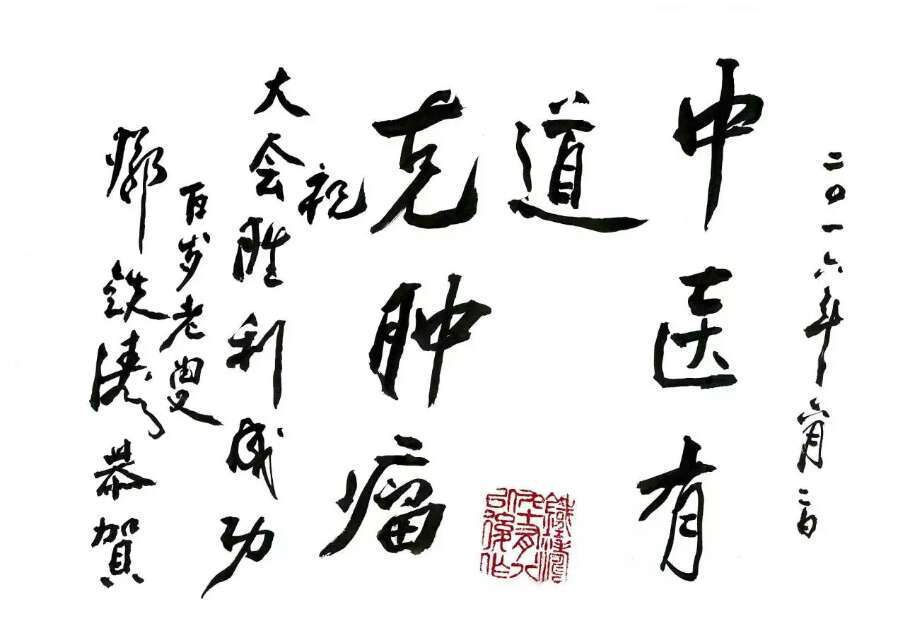 二〇一六年六月二日
中医有
道
克肿瘤
祝
大会胜利成功
百岁老叟
鄧鉄濤恭賀